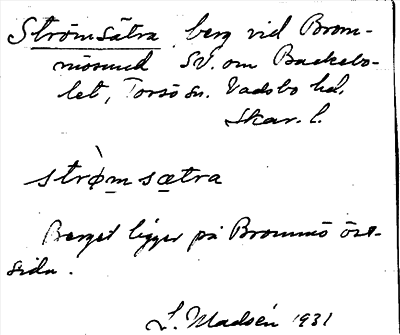 Strömsätra, berg vid Brom-
mösund SV. om Backebo-
let, Torsö sn. Vadsbo hd.
Skar. l.
strø̀m sætra
Berget ligger på Brommö öst-
sida.
L. Madsén 1931